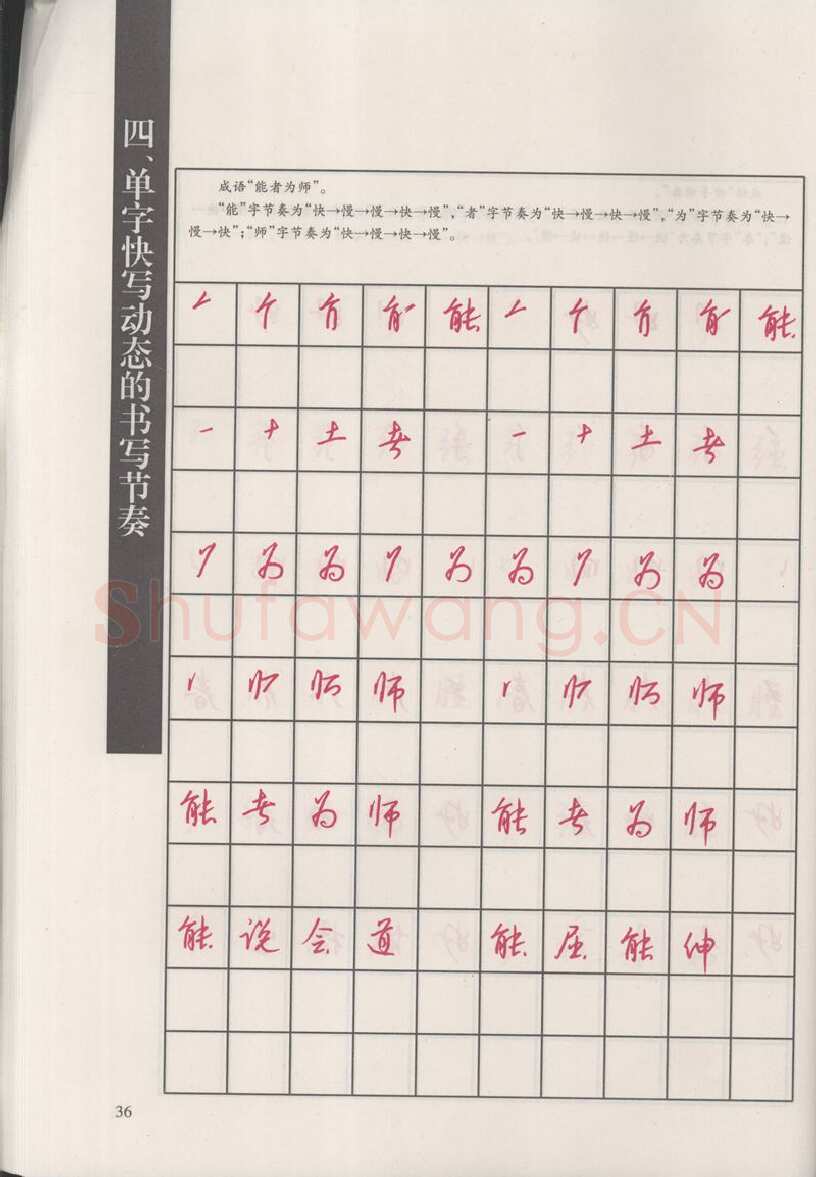 四、单字快写动态的书写节奏
成语“能者为师”。
“能”字节奏为“快→慢→慢→快→慢”，“者”字节奏为“快→慢→快→慢”，“为”字节奏为“快→
慢→快”；“师”字节奏为“快→慢→快→慢”。
能 能
一 十 土 者 一 十 土 者
为 为 为 为 为 为
师 师
能 者 为 师 能 者 为 师
能 说 会 道 能 屈 能 伸
Shufawang.CN
36